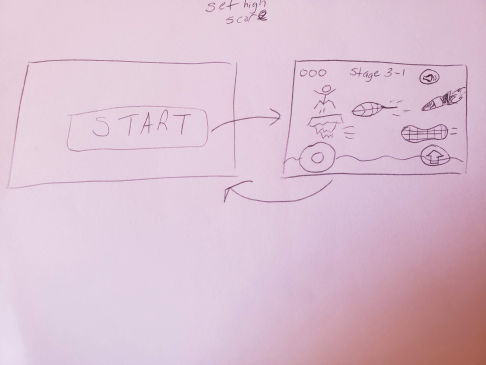 set high
score
START
000 Stage 3-1